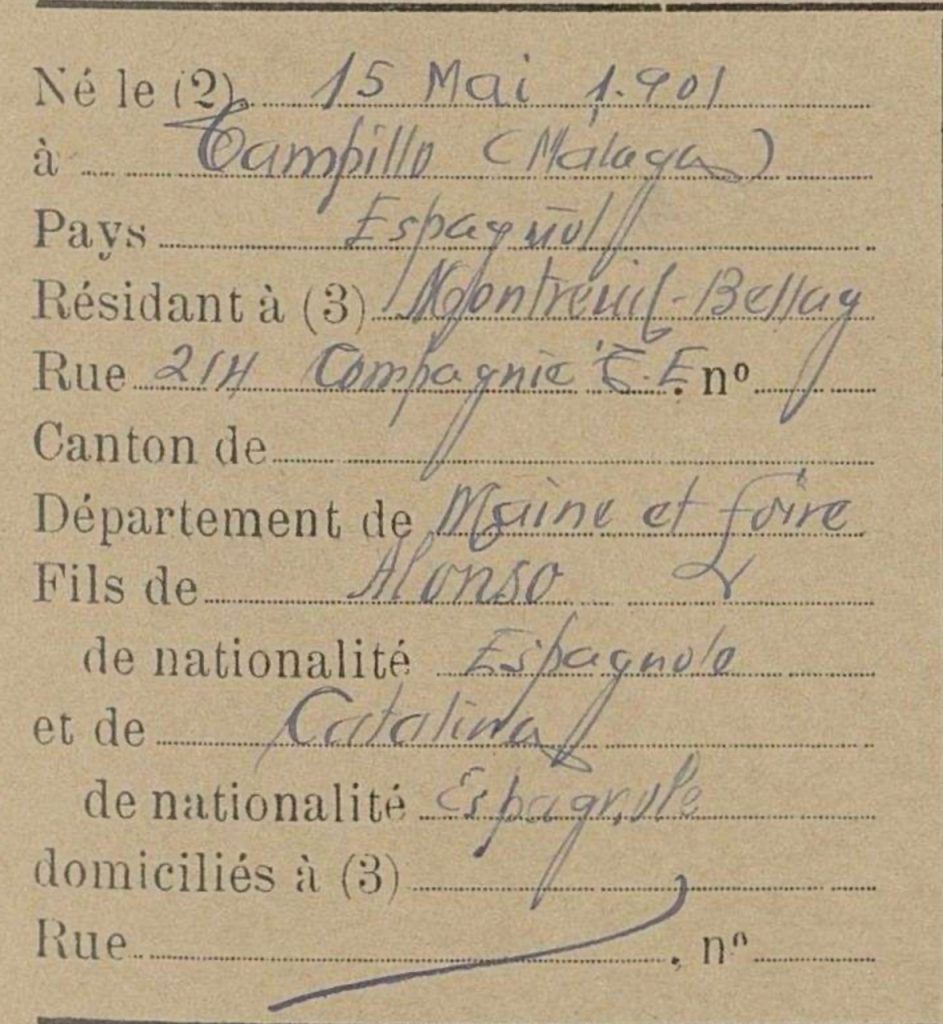 Né le (2) 15 Mai 1.901
à Campillo (Málaga)
Pays Espagñol
Résidant à (3) Montreuil-Bellay
Rue 214 Compagnie T.E. nº
Canton de
Département de Maine et Loire
Fils de Alonso
de nationalité Espagnole
et de Catalina
de nationalité Espagnole
domiciliés à (3)
Rue . nº